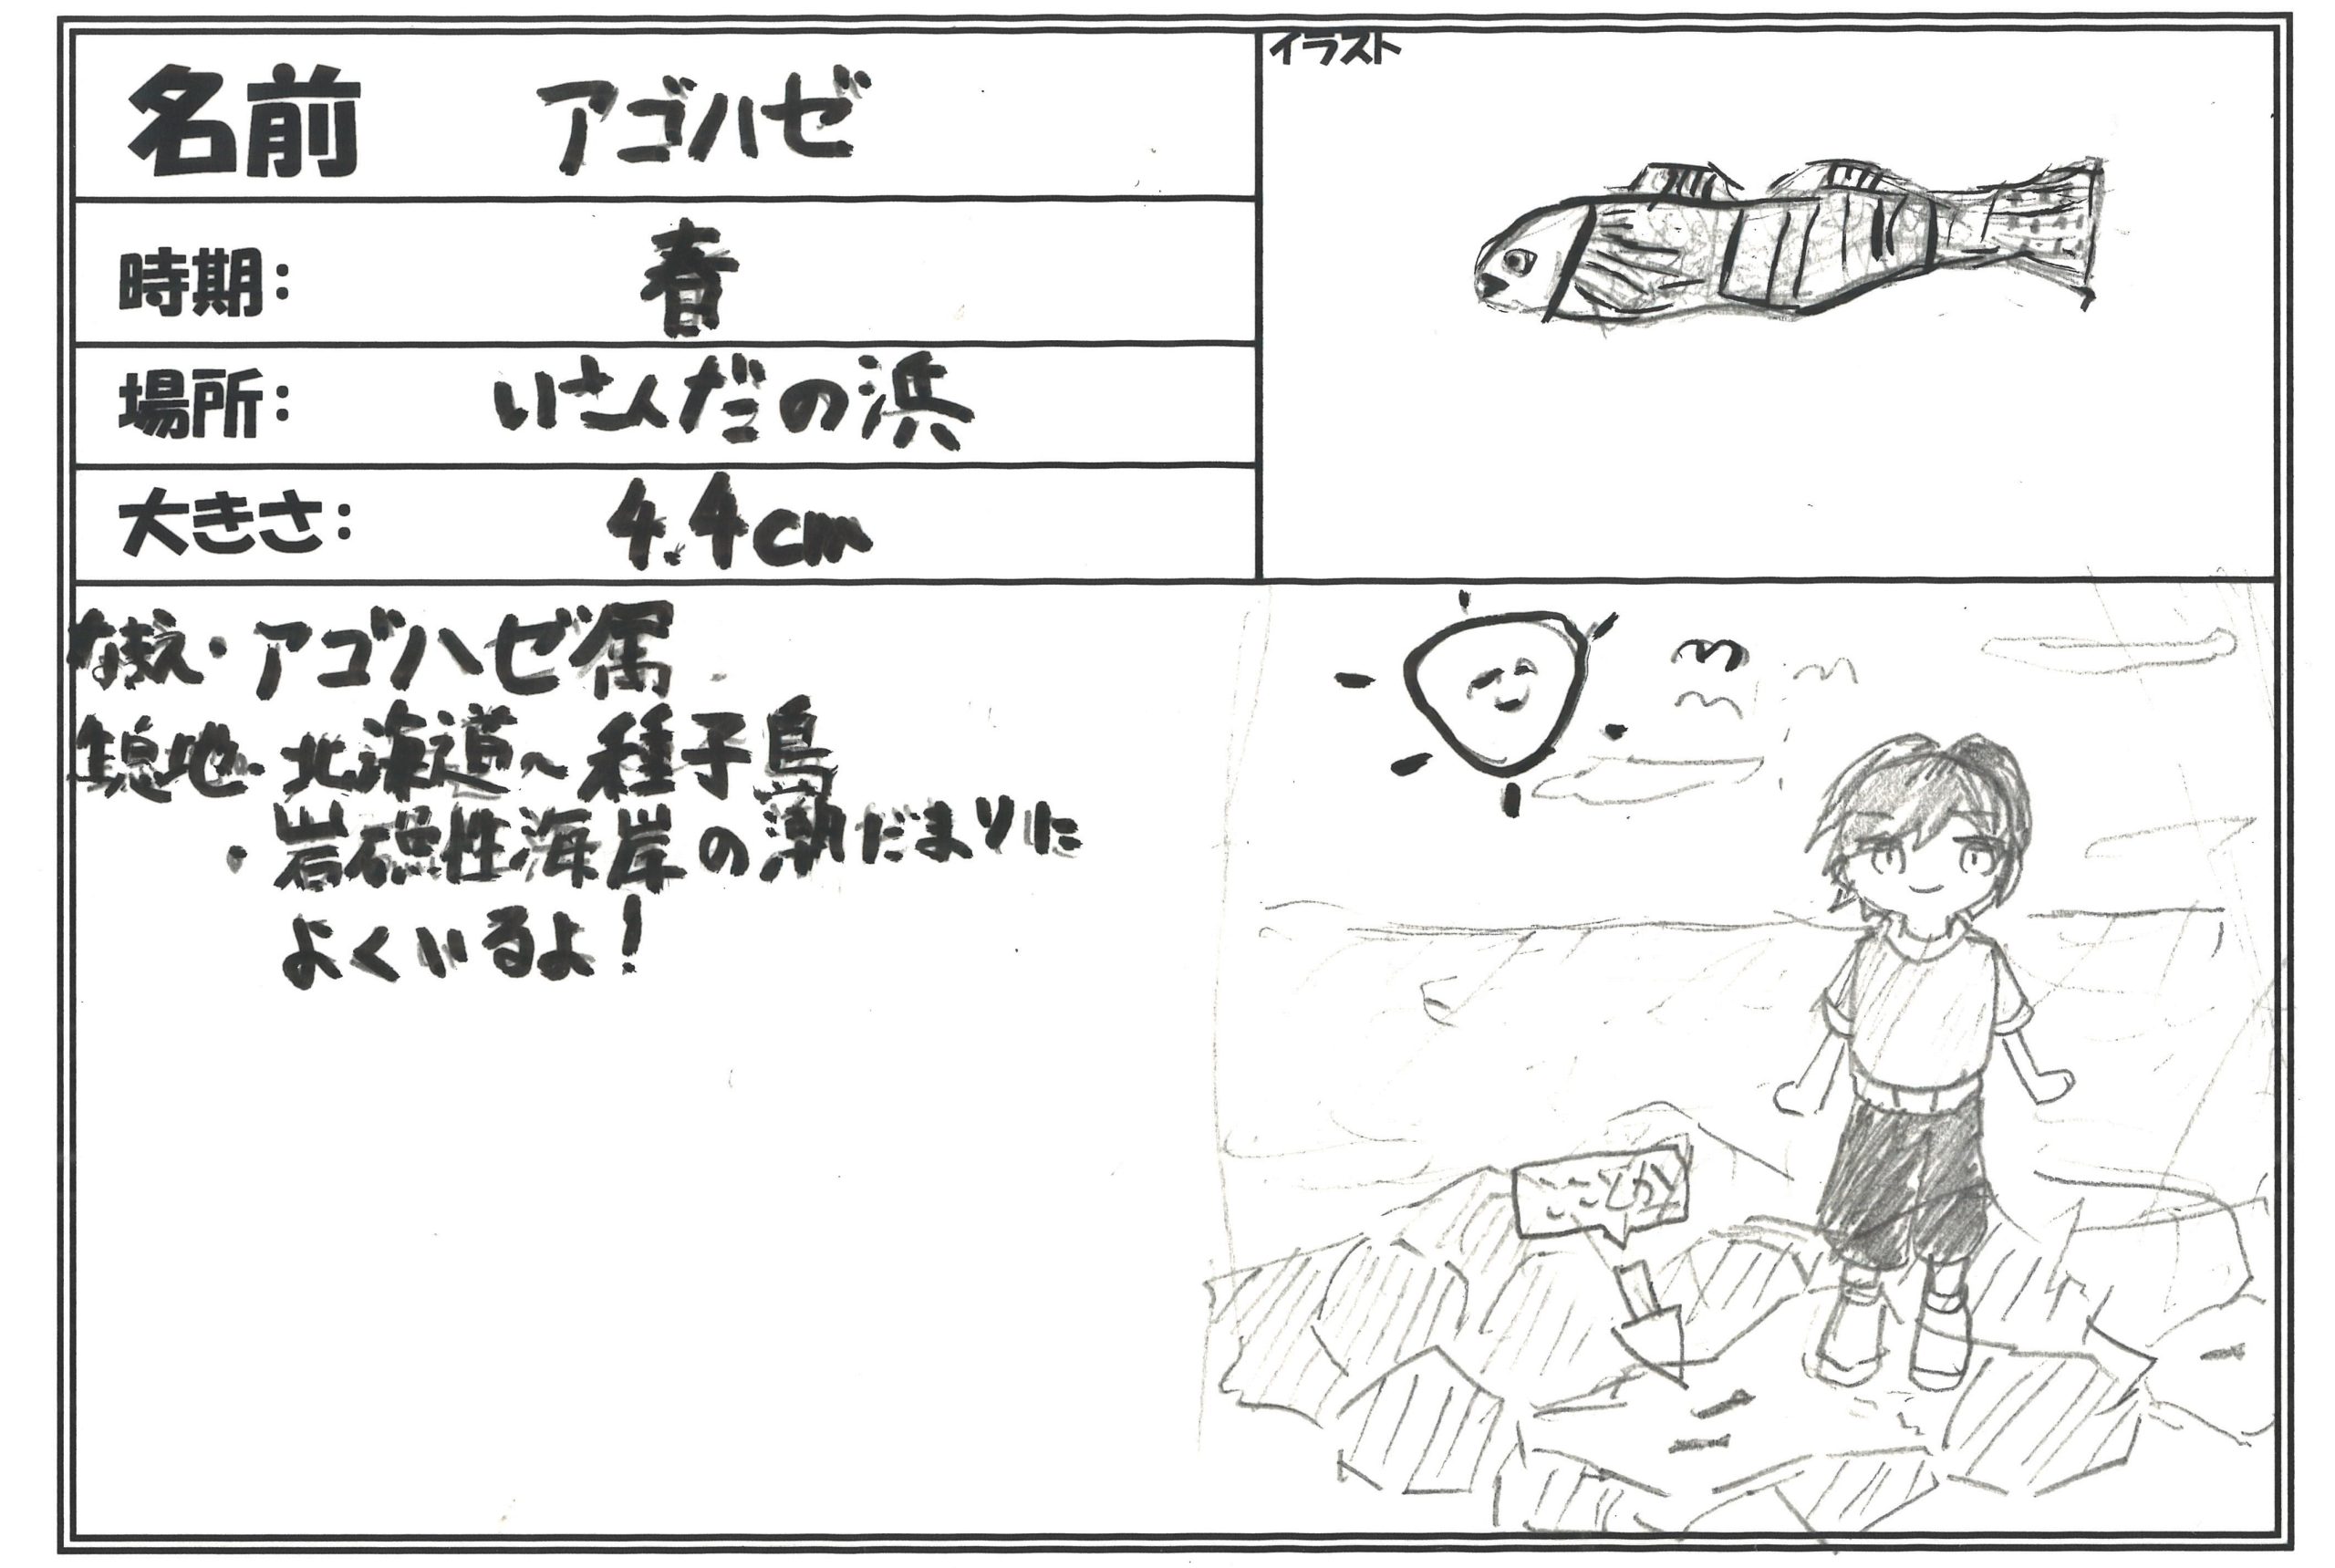 名前 アゴハゼ
イラスト
時期: 春
場所: いさんだの浜
大きさ: 4.4cm
なまえ・アゴハゼ属
生息地・北海道~種子島
・岩礁性海岸の潮だまりに
よくいるよ!